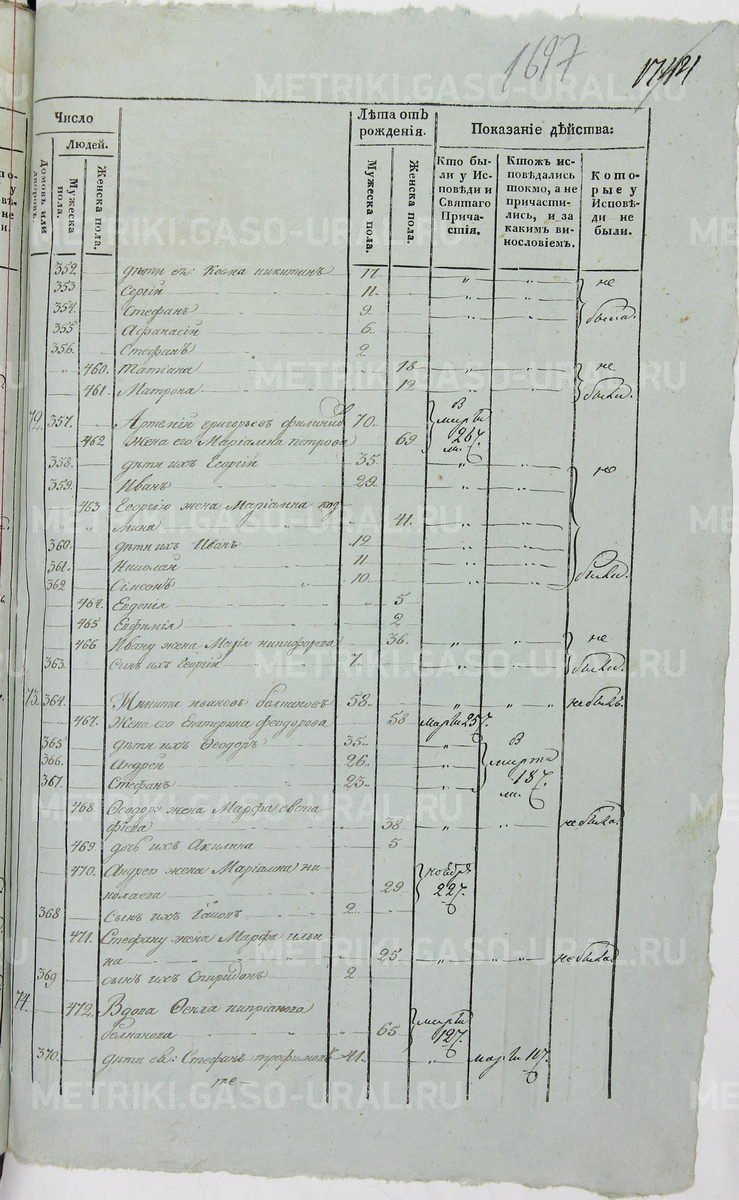 1697
Число
Людей.
Домовъ или дворовъ.
Мужеска пола.
Женска пола.
Лѣта отъ рожденія.
Мужеска пола.
Женска пола.
Показаніе дѣйства:
Кто бы-
ли у Ис-
повѣди и
Святаго
Прича-
стія.
Ктожъ ис-
повѣдались
токмо, а не
причасти-
лись, и за
какимъ ви-
нословіемъ.
Кото-
рые у
Исповѣ-
ди не
были.
352. дѣти ея: Косма никитинъ 17.
353 Сергій 11. не
354. Стефанъ 9. были.
355 Афанасій 6.
356. Стефанъ 2
460. Татіана 18 не
461. Матрона 12 были.
72. 357. Артемій григорьевъ 70. В марта 26
462 Жена его Маріамна петрова 69
358. дѣти ихъ Георгій 35. не
359. Иванъ 29.
463 Георгію жена Маріамна коз
мина 41.
360. дѣти ихъ Иванъ 12
361. Николай 11
362 Симеонъ 10. были.
464. Евдокія 5
465 Евфимія 2
466 Ивану жена Марія никифорова 36. не
363. сынъ ихъ Георгій 7. были.
73. 364. Никита ивановъ 58. не былъ.
467. Жена его Екатерина феодорова 58 марта 25
365 дѣти ихъ Феодоръ 35. В
366. Андрей 26. марта
367. Стефанъ 23. 18
468. Феодору жена Марфа евста
фіева 38 не была.
469 дочь ихъ Акилина 5
470. Андрею жена Маріамна ни-
колаева 29 ноября 22
368 сынъ ихъ 2
471. Стефану жена Марфа ильи
на 25 не была
369 сынъ ихъ Спиридонъ 2
74. 472. Вдова Фекла кипріанова
65 марта 12
370. дѣти ея: Стефанъ трофимовъ 41. марта 10
те-
METRIKI.GASO-URAL.RU